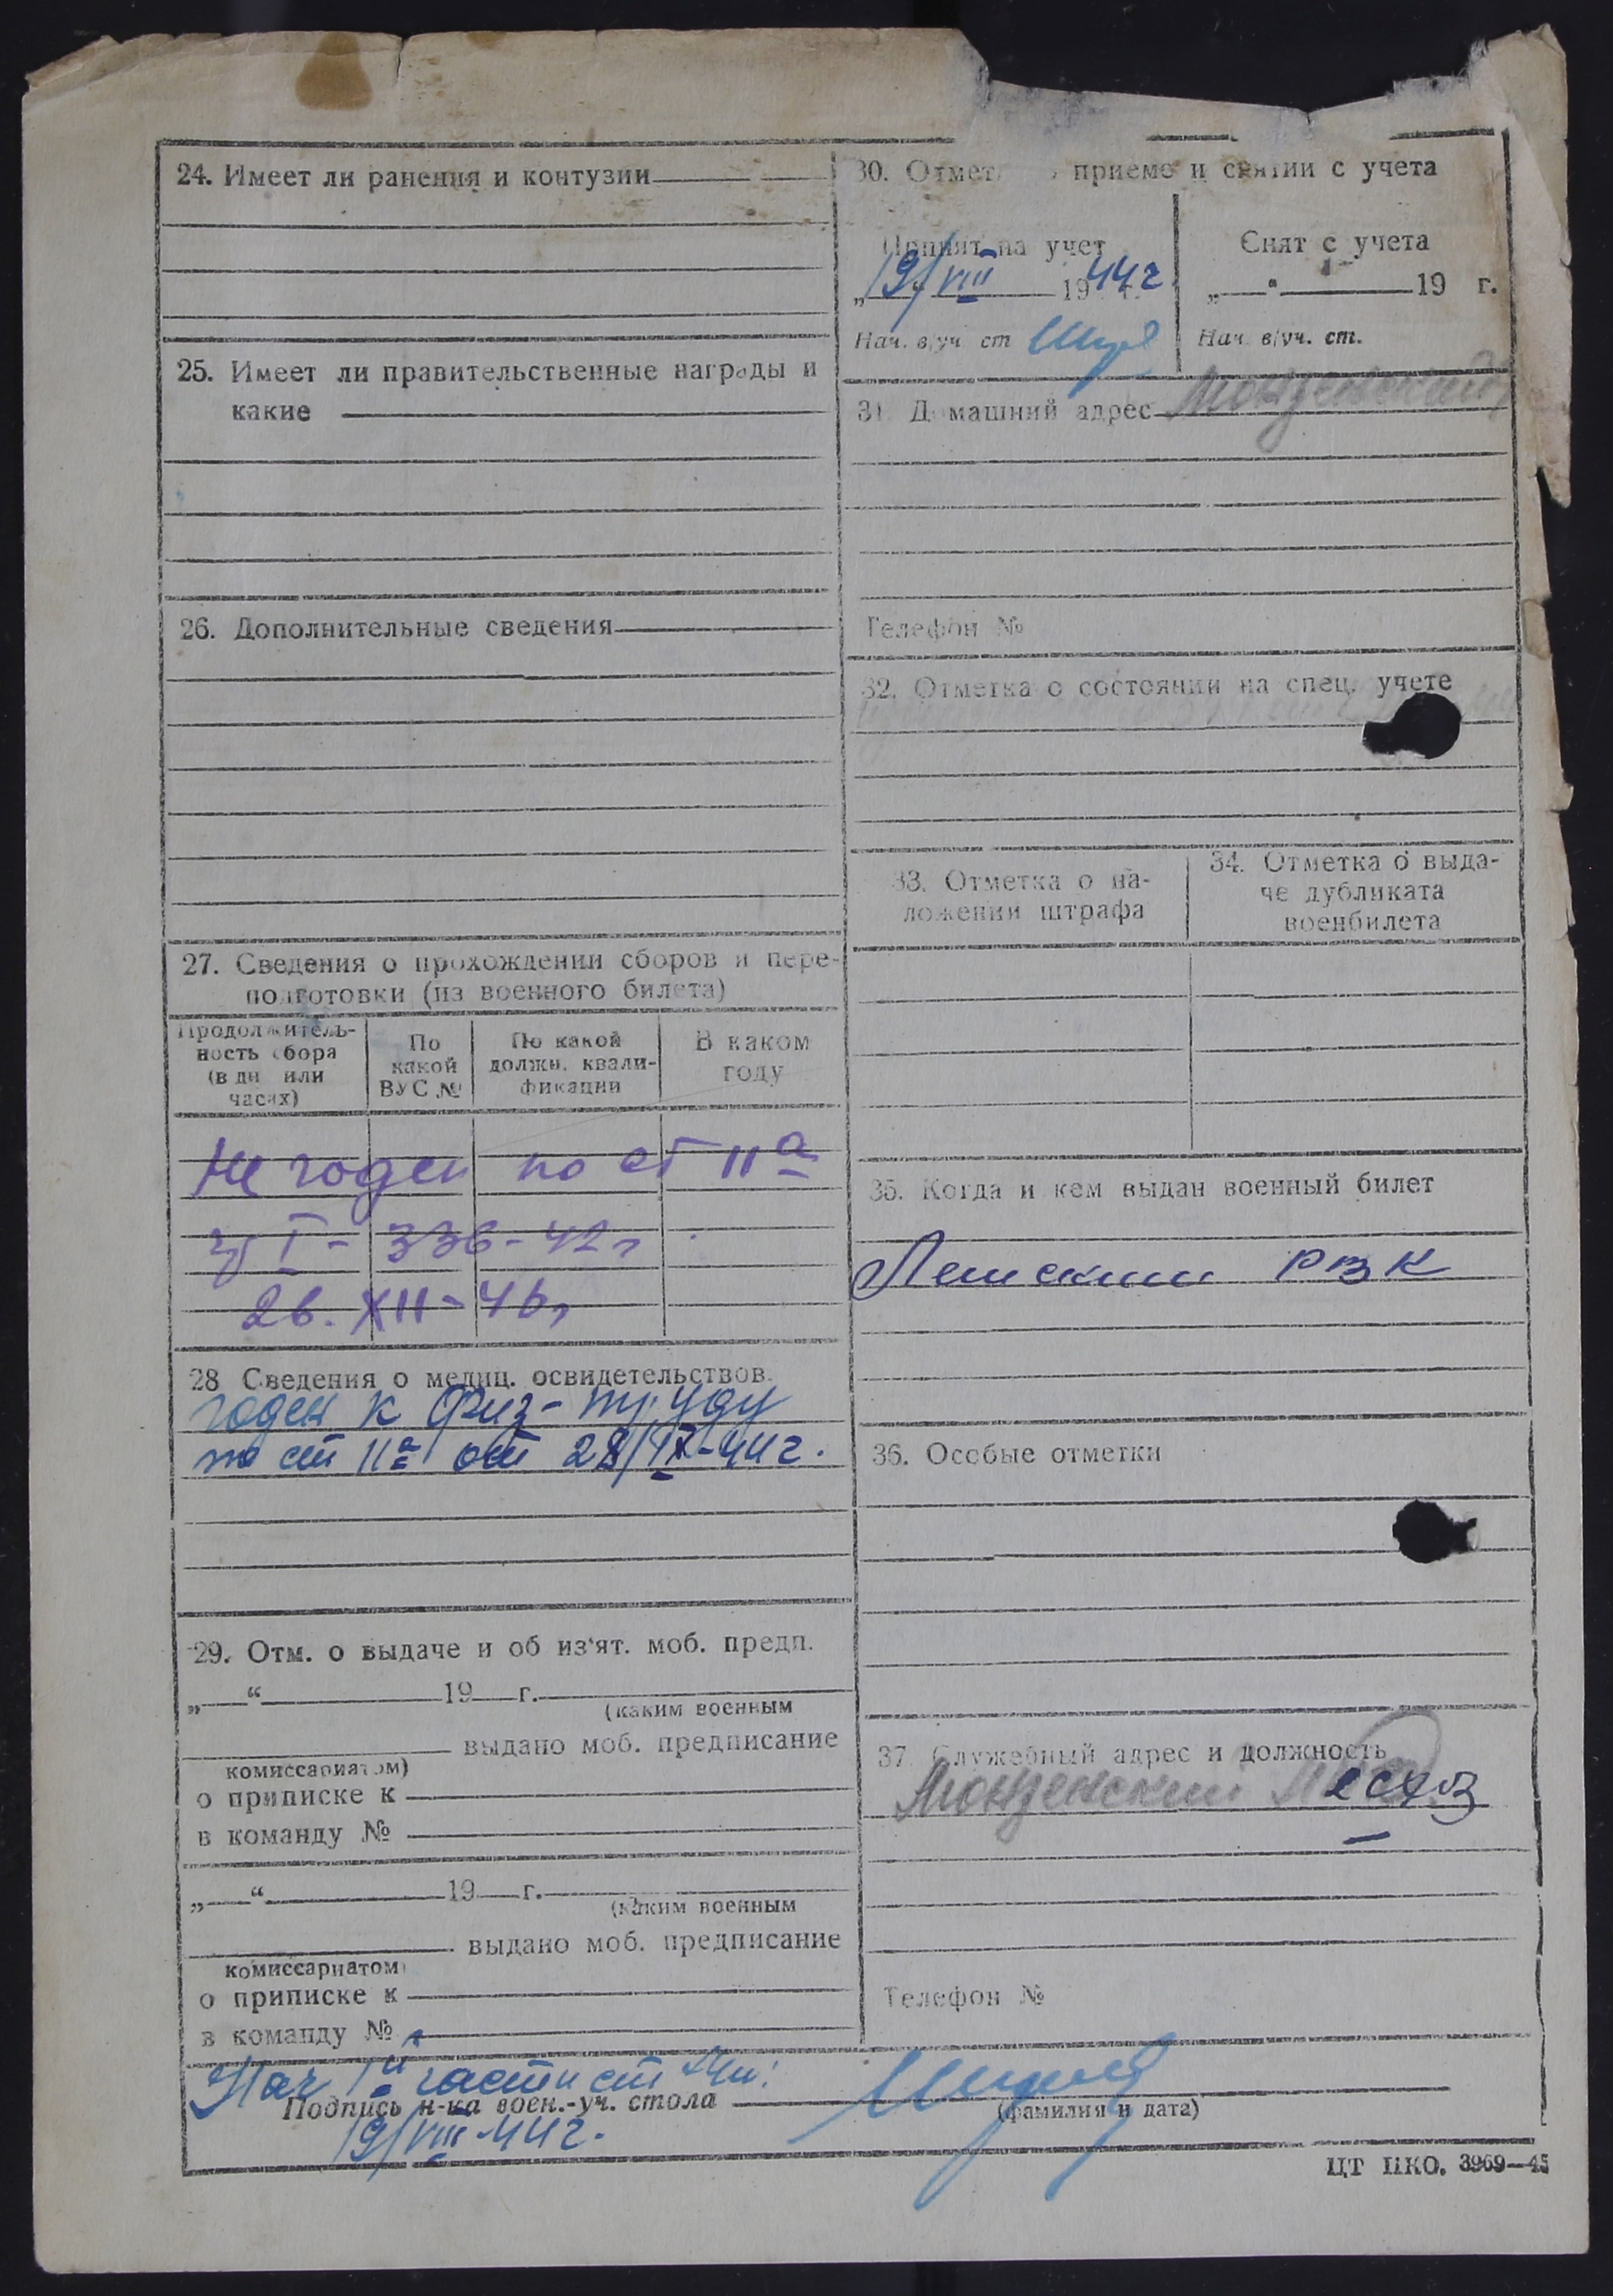 24. Имеет ли ранения и контузии
25. Имеет ли правительственные награды и
какие
26. Дополнительные сведения
27. Сведения о прохождении сборов и пере-
подготовки (из военного билета)
Продолжитель-
ность сбора
(в дн или
часах)
По
какой
ВУС №
По какой
должн. квали-
фикации
В каком
году
Не годен по ст 11а
I - 336-42г
26. XII-46г
28 Сведения о медиц. освидетельствов.
годен к физ-труду
по ст 11а от 28/IX-44г.
29. Отм. о выдаче и об из'ят. моб. предп.
„ “ 19 г.
(каким военным
выдано моб. предписание
комиссариатом)
о приписке к
в команду №
„ “ 19 г.
(каким военным
выдано моб. предписание
комиссариатом)
о приписке к
в команду №
30. Отмет приеме и снятии с учета
Принят на учет
19/VIII 1944г
Нач. в/уч. ст
Снят с учета
„ “ 19 г.
Нач. в/уч. ст.
31 Домашний адрес Монзенский
Телефон №
32. Отметка о состоянии на спец. учете
33. Отметка о на-
ложении штрафа
34. Отметка о выда-
че дубликата
военбилета
35. Когда и кем выдан военный билет
РВК
36. Особые отметки
37. Служебный адрес и должность
Монзенский
Телефон №
Нач 1й части ст
Подпись н-ка воен.-уч. стола
(фамилия и дата)
19/VIII-44г.
ЦТ НКО. 3969—45